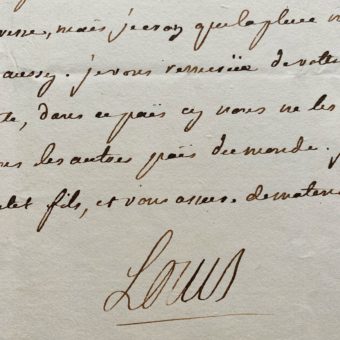 mais je crois que la pluie
aussy. je vous remercie de votre
te, dans ce païs cy nous ne les
les autres païs du monde.
fils, et vous assure de ma ten
Louis